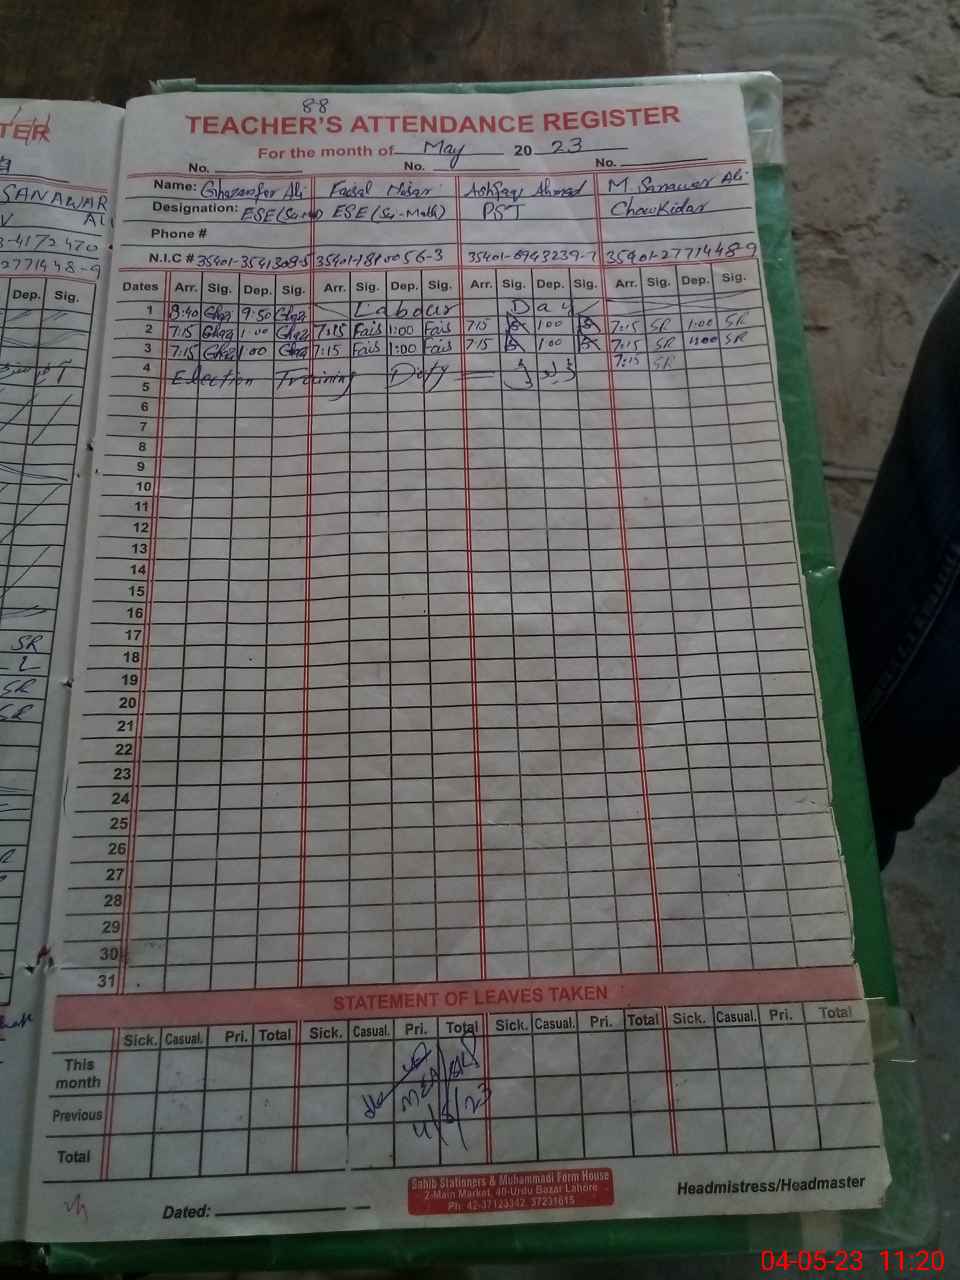 88
TEACHER'S ATTENDANCE REGISTER
For the month of May 20 23
No. No. No.
Name: Ghazanfer Ali Faisal Ahmad M. Sanawar Ali
Designation: ESE ESE (Sci-Math) PST Chowkidar
Phone #
N.I.C # 35401-2771448-9
Dates Arr. Sig. Dep. Sig. Arr. Sig. Dep. Sig. Arr. Sig. Dep. Sig. Arr. Sig. Dep. Sig.
1 8:40 Ghaz 9:50 Ghaz Labour Day
2 7:15 Ghaz 1:00 Ghaz 7:15 Fais 1:00 Fais 7:15 1:00 7:15 SR 1:00 SR
3 7:15 Ghaz 1:00 Ghaz 7:15 Fais 1:00 Fais 7:15 1:00 7:15 SR 1:00 SR
4 Election Training Duty 7:15 SR
5
6
7
8
9
10
11
12
13
14
15
16
17
18
19
20
21
22
23
24
25
26
27
28
29
30
31
STATEMENT OF LEAVES TAKEN
Sick. Casual. Pri. Total Sick. Casual. Pri. Total Sick. Casual. Pri. Total Sick. Casual. Pri. Total
This month
Previous
Total
MEA
4/5/23
Dated:
Sahib Stationers & Muhammadi Form House
2-Main Market, 40-Urdu Bazar Lahore
Ph: 42-37123342, 37231615
Headmistress/Headmaster
TER
SANAWAR
2771448-9
Dep. Sig.
SR
L
SR
SR
04-05-23 11:20